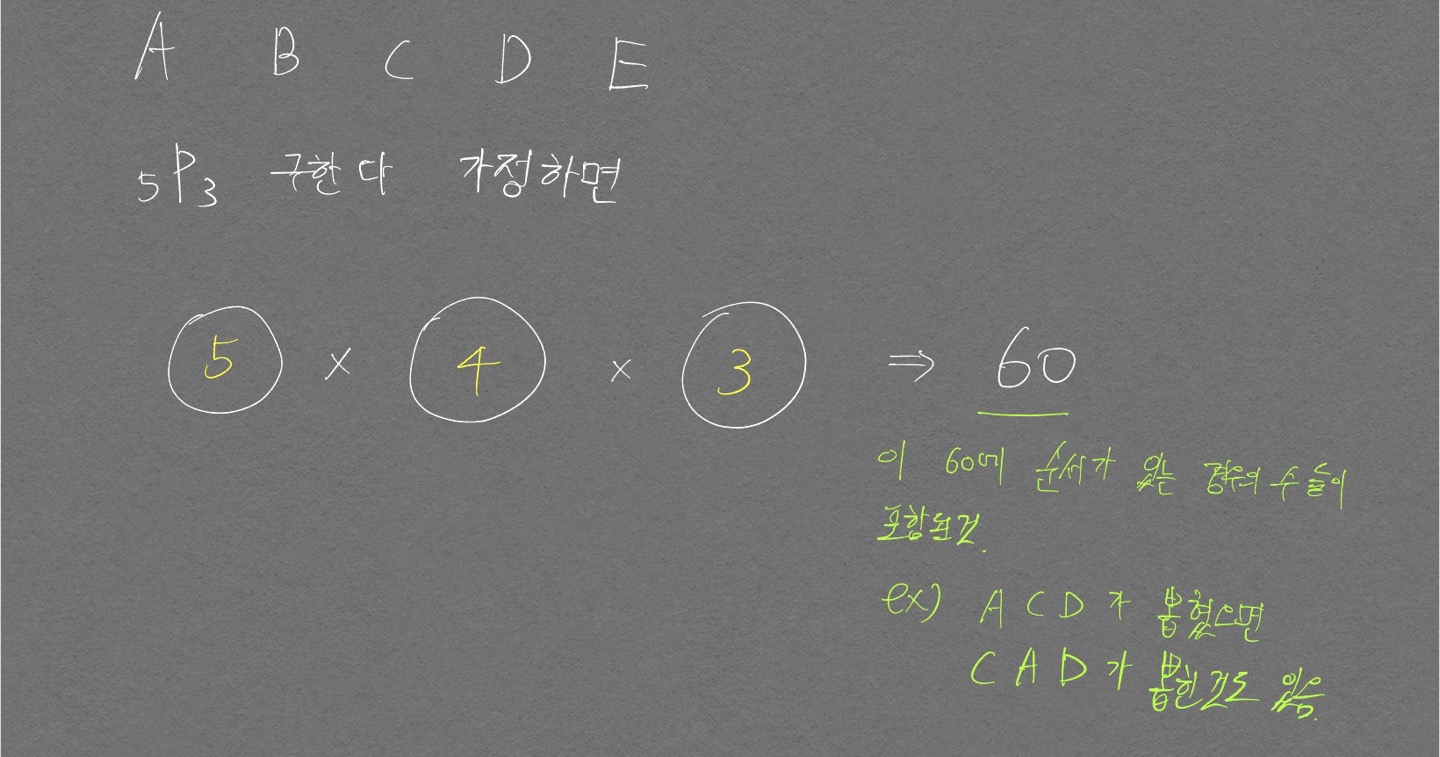 A B C D E
5P3 구한다 가정하면
5 x 4 x 3 ⇒ 60
이 60에 순서가 있는 경우의 수들이
포함된것.
ex) A C D 가 뽑혔으면
C A D 가 뽑힌것도 있음.